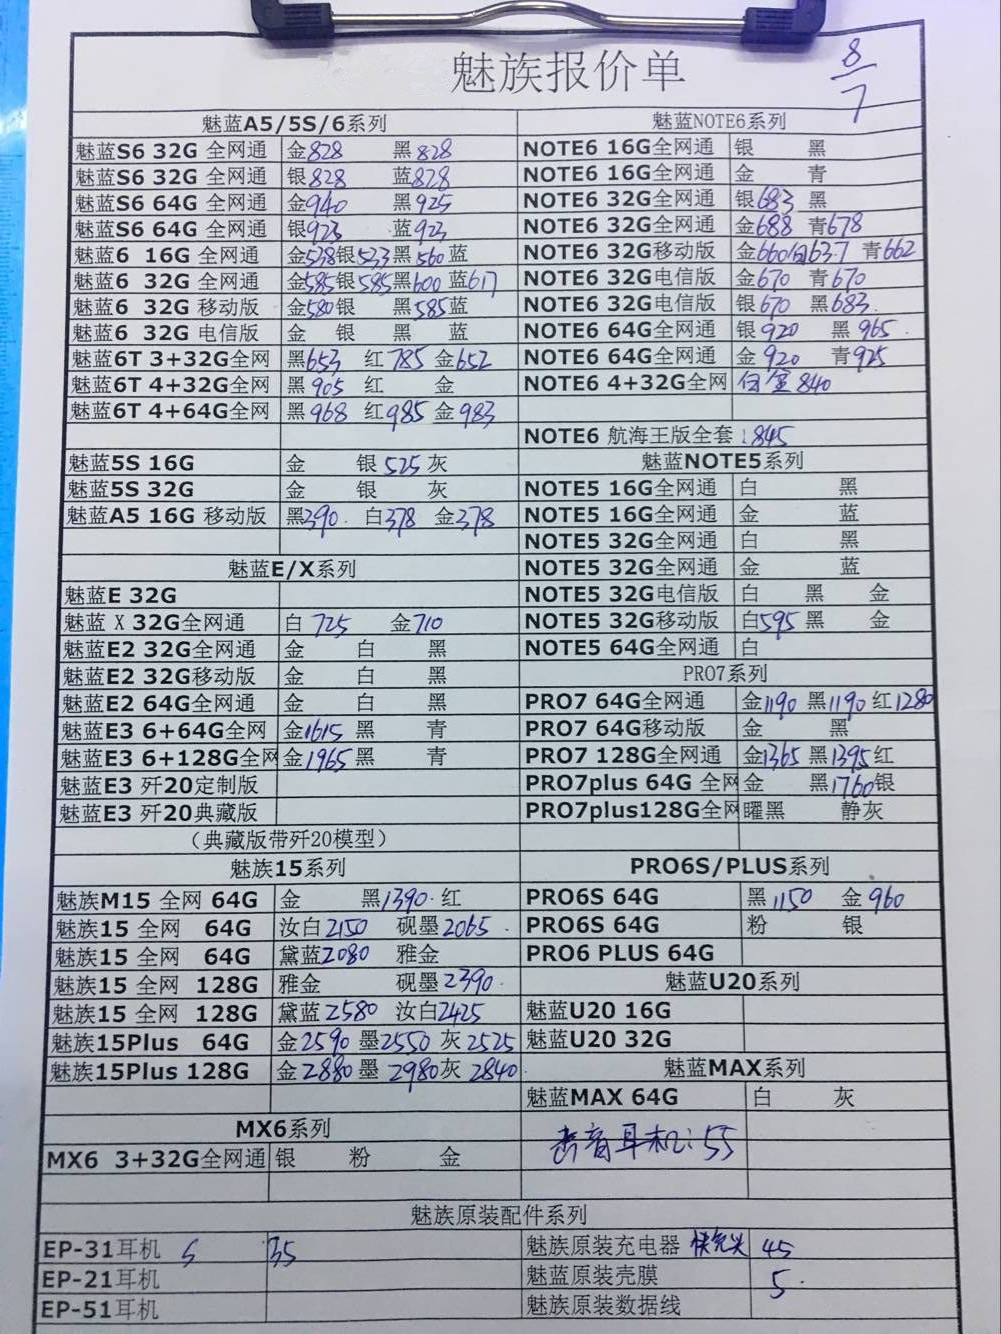 魅族报价单
8/7
魅蓝A5/5S/6系列
魅蓝S6 32G 全网通 金828 黑828
魅蓝S6 32G 全网通 银828 蓝828
魅蓝S6 64G 全网通 金940 黑925
魅蓝S6 64G 全网通 银923 蓝923
魅蓝6 16G 全网通 金538银533黑560蓝
魅蓝6 32G 全网通 金585银585黑600蓝617
魅蓝6 32G 移动版 金580银 黑585蓝
魅蓝6 32G 电信版 金 银 黑 蓝
魅蓝6T 3+32G全网 黑653 红785 金652
魅蓝6T 4+32G全网 黑905 红 金
魅蓝6T 4+64G全网 黑968 红985 金983
魅蓝5S 16G 金 银525灰
魅蓝5S 32G 金 银 灰
魅蓝A5 16G 移动版 黑390. 白378 金378
魅蓝E/X系列
魅蓝E 32G
魅蓝 X 32G全网通 白725 金710
魅蓝E2 32G全网通 金 白 黑
魅蓝E2 32G移动版 金 白 黑
魅蓝E2 64G全网通 金 白 黑
魅蓝E3 6+64G全网 金1615 黑 青
魅蓝E3 6+128G全网 金1965 黑 青
魅蓝E3 歼20定制版
魅蓝E3 歼20典藏版
（典藏版带歼20模型）
魅族15系列
魅族M15 全网 64G 金 黑1390. 红
魅族15 全网 64G 汝白2150 砚墨2065.
魅族15 全网 64G 黛蓝2080 雅金
魅族15 全网 128G 雅金 砚墨2390.
魅族15 全网 128G 黛蓝2580 汝白2425
魅族15Plus 64G 金2590 墨2550 灰2525
魅族15Plus 128G 金2880墨 2980灰 2840
MX6系列
MX6 3+32G全网通 银 粉 金
魅蓝NOTE6系列
NOTE6 16G全网通 银 黑
NOTE6 16G全网通 金 青
NOTE6 32G全网通 银683 黑
NOTE6 32G全网通 金688 青678
NOTE6 32G移动版 金660白637 青662
NOTE6 32G电信版 金670 青670
NOTE6 32G电信版 银670 黑683.
NOTE6 64G全网通 银920 黑965.
NOTE6 64G全网通 金920 青925
NOTE6 4+32G全网 白金840
NOTE6 航海王版全套 845
魅蓝NOTE5系列
NOTE5 16G全网通 白 黑
NOTE5 16G全网通 金 蓝
NOTE5 32G全网通 白 黑
NOTE5 32G全网通 金 蓝
NOTE5 32G电信版 白 黑 金
NOTE5 32G移动版 白595 黑 金
NOTE5 64G全网通 白
PRO7系列
PRO7 64G全网通 金1190 黑1190 红1280
PRO7 64G移动版 金 黑
PRO7 128G全网通 金1365 黑1395红
PRO7plus 64G 全网 金 黑1760银
PRO7plus128G全网 曜黑 静灰
PRO6S/PLUS系列
PRO6S 64G 黑1150 金960
PRO6S 64G 粉 银
PRO6 PLUS 64G
魅蓝U20系列
魅蓝U20 16G
魅蓝U20 32G
魅蓝MAX系列
魅蓝MAX 64G 白 灰
耳机: 55
魅族原装配件系列
EP-31耳机 35
EP-21耳机
EP-51耳机
魅族原装充电器 快充头 45
魅蓝原装壳膜 5.
魅族原装数据线